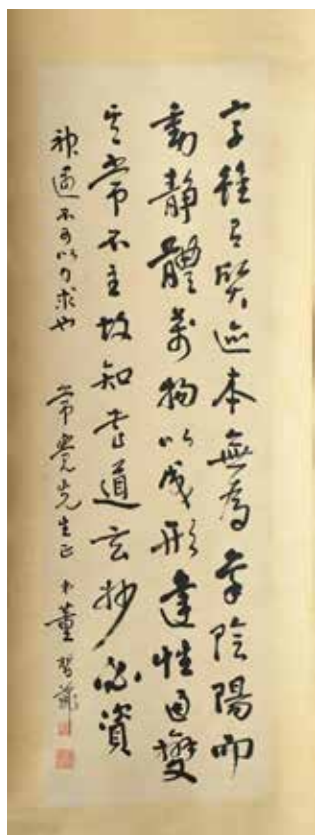 字雖有質迹本無為稟陰陽而
動靜體萬物以成形達性通變
其常不主故知書道玄妙必資
神遇不可以力求也 常覺先生正 董